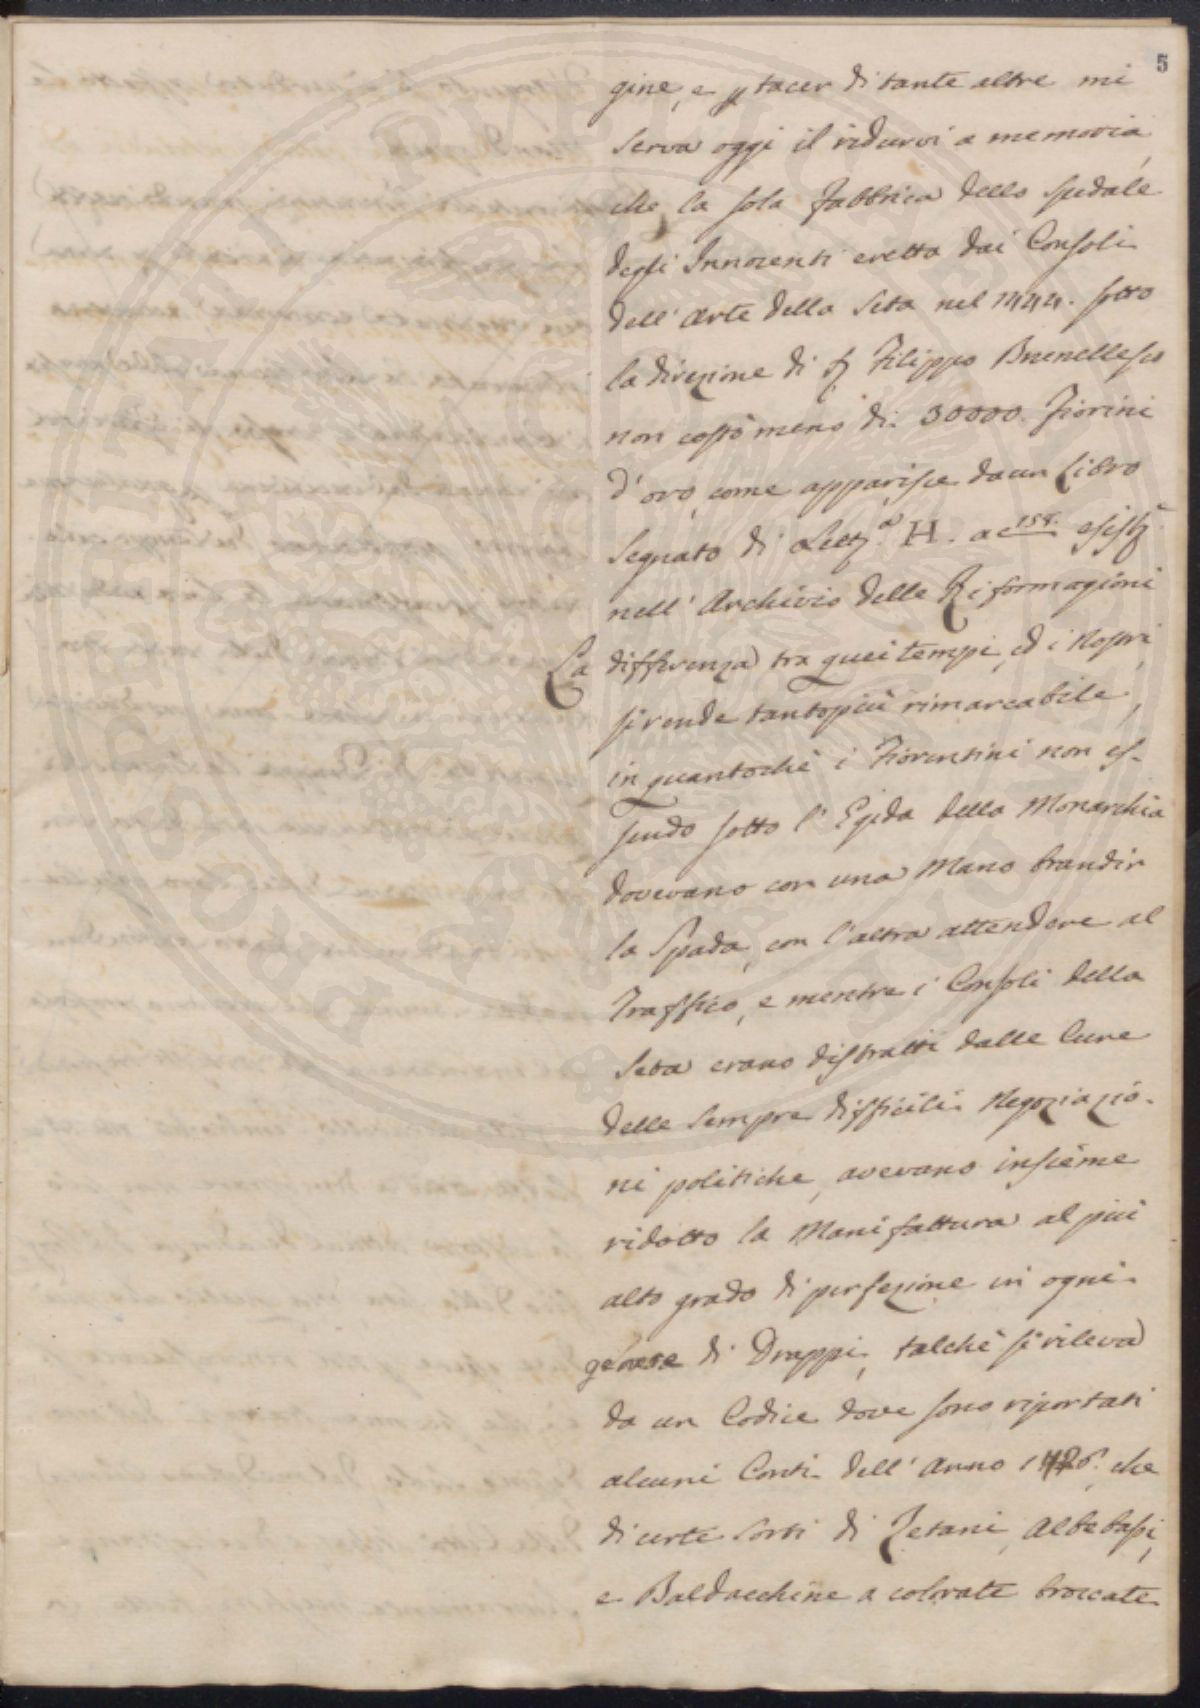 5
gine, e p tacer di tante altre mi
serva oggi il ridurvi a memoria,
che la sola fabbrica dello spedale
degli Innocenti eretta dai Consoli
dell' Arte della Seta nel 1444. sotto
la direzione di Filippo Brunellesco
non costò meno di 30000. Fiorini
d'oro, come apparisce da un Libro
segnato di Lett.a H. a c 158.
nell' Archivio delle Riformagioni
La differenza tra quei tempi, ed i nostri,
si rende tantopiù rimarcabile,
in quantochè i Fiorentini non es-
sendo sotto l' Egida della Monarchia
dovevano con una Mano brandir
la Spada, con l'altra attendere al
Traffico, e mentre i Consoli della
Seta erano distratti dalle Cure
delle sempre difficili Negoziazio-
ni politiche, avevano insieme
ridotto la Manifattura al più
alto grado di perfezione in ogni
genere di Drappi, talchè si rileva
da un Codice dove sono riportati
alcuni Conti dell' Anno che
di certe sorti di Zetani, Albebassi,
e Baldacchine a colorate broccate